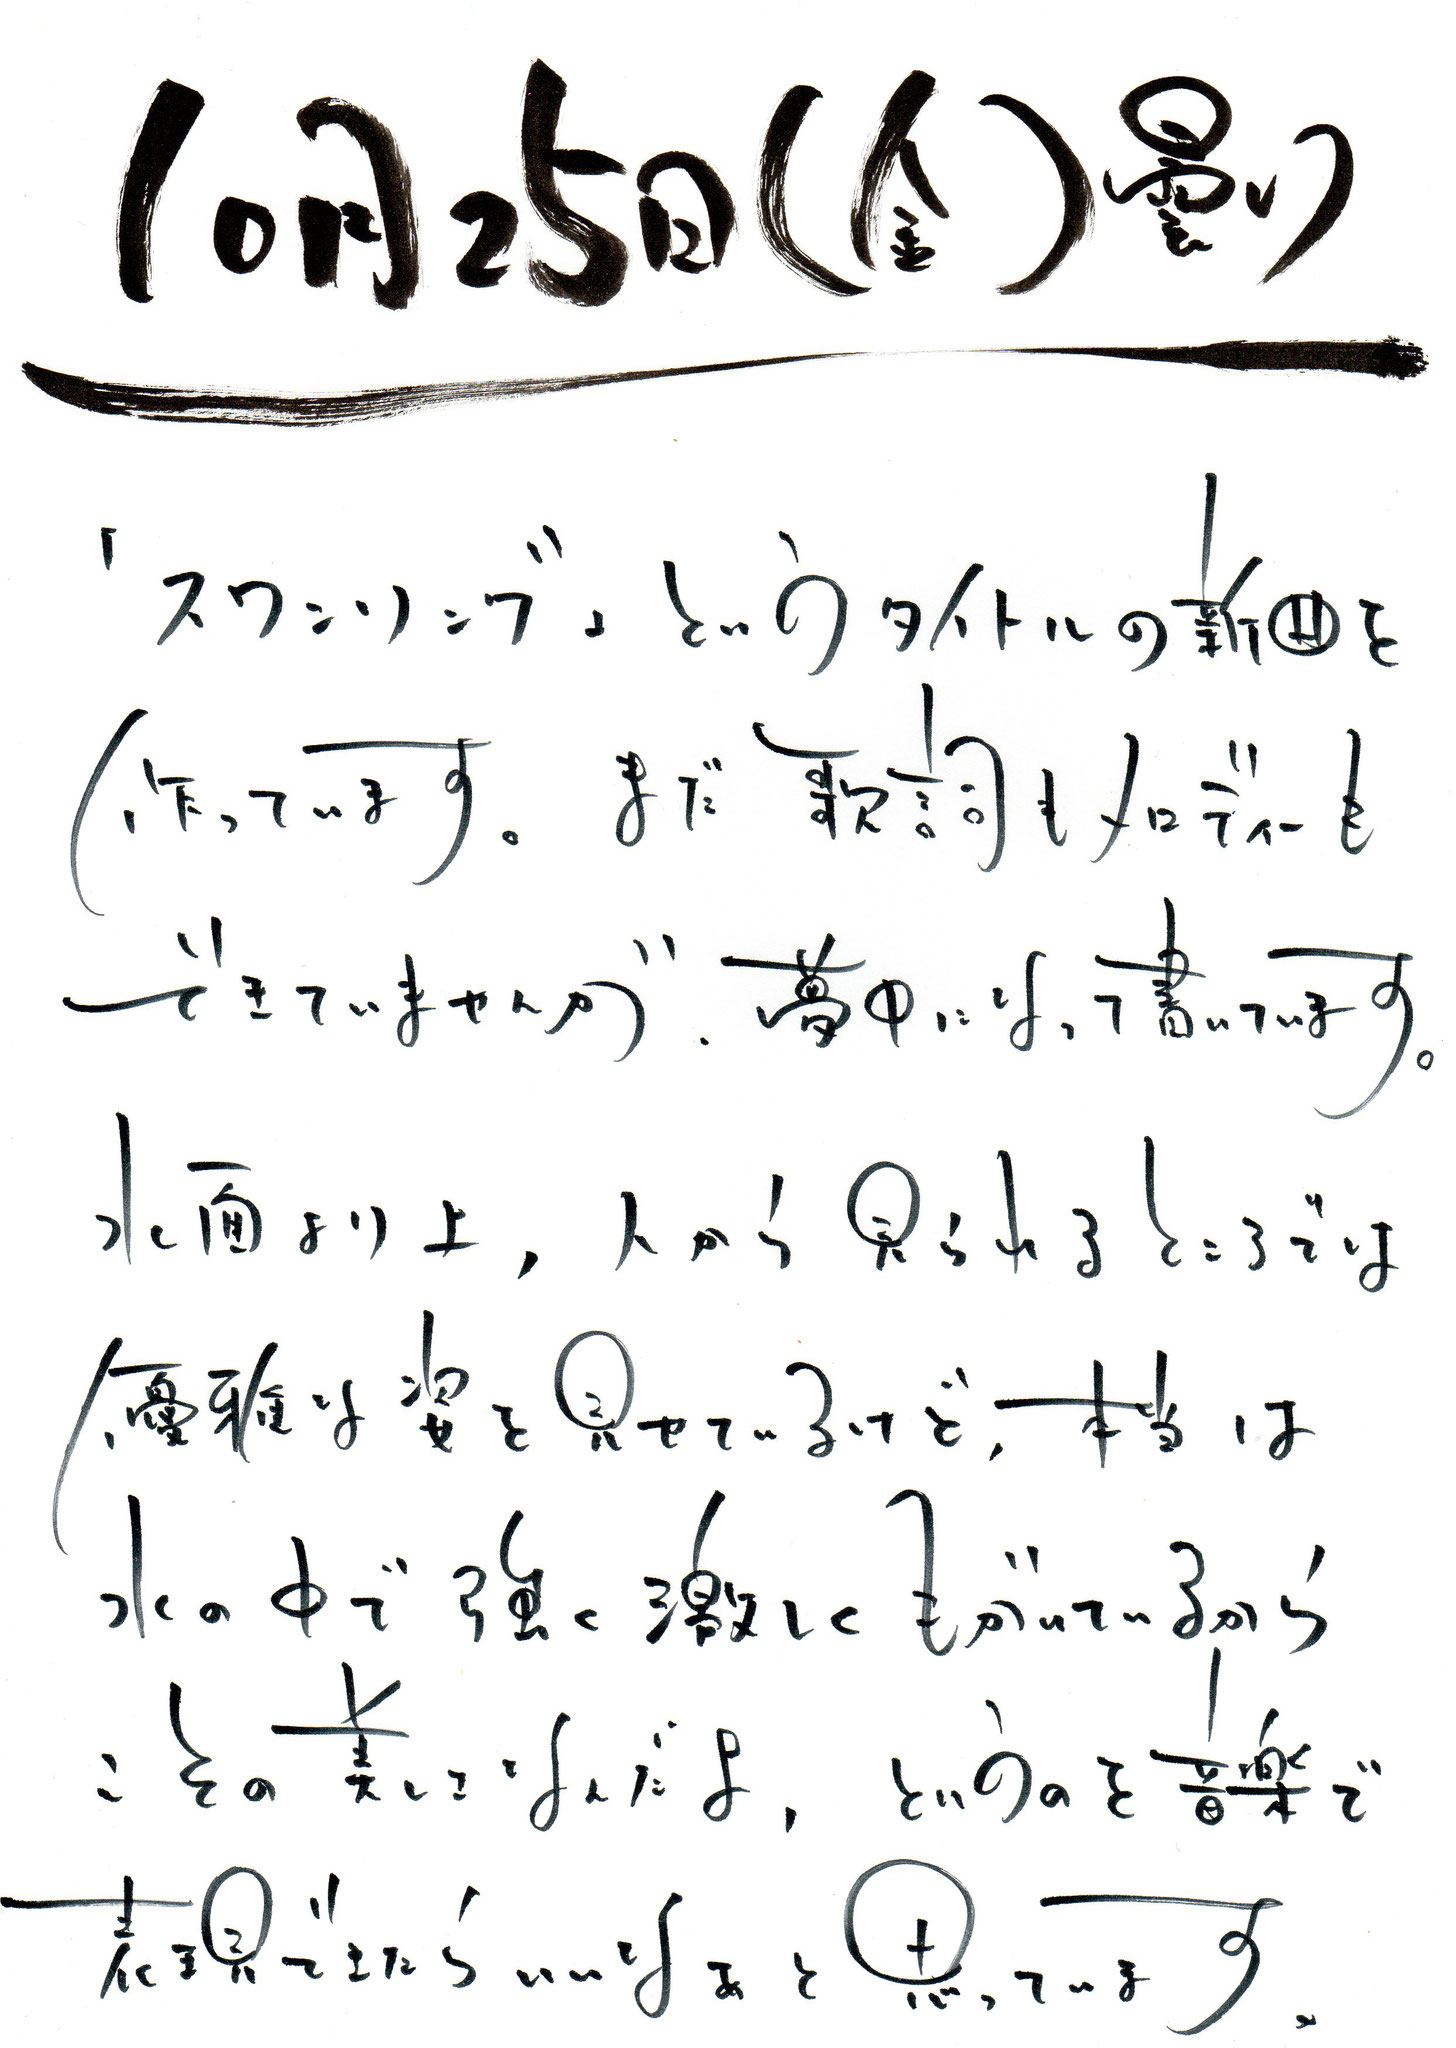 10月25日(金)曇り
「スワンソング」というタイトルの新曲を
作っています。まだ歌詞もメロディーも
できていませんが、夢中になって書いています。
水面より上，人から見られるところでは
優雅な姿を見せているけど，本当は
水の中で強く激しくもがいているから
こその美しさなんだよ，というのを音楽で
表現できたらいいなぁと思っています、